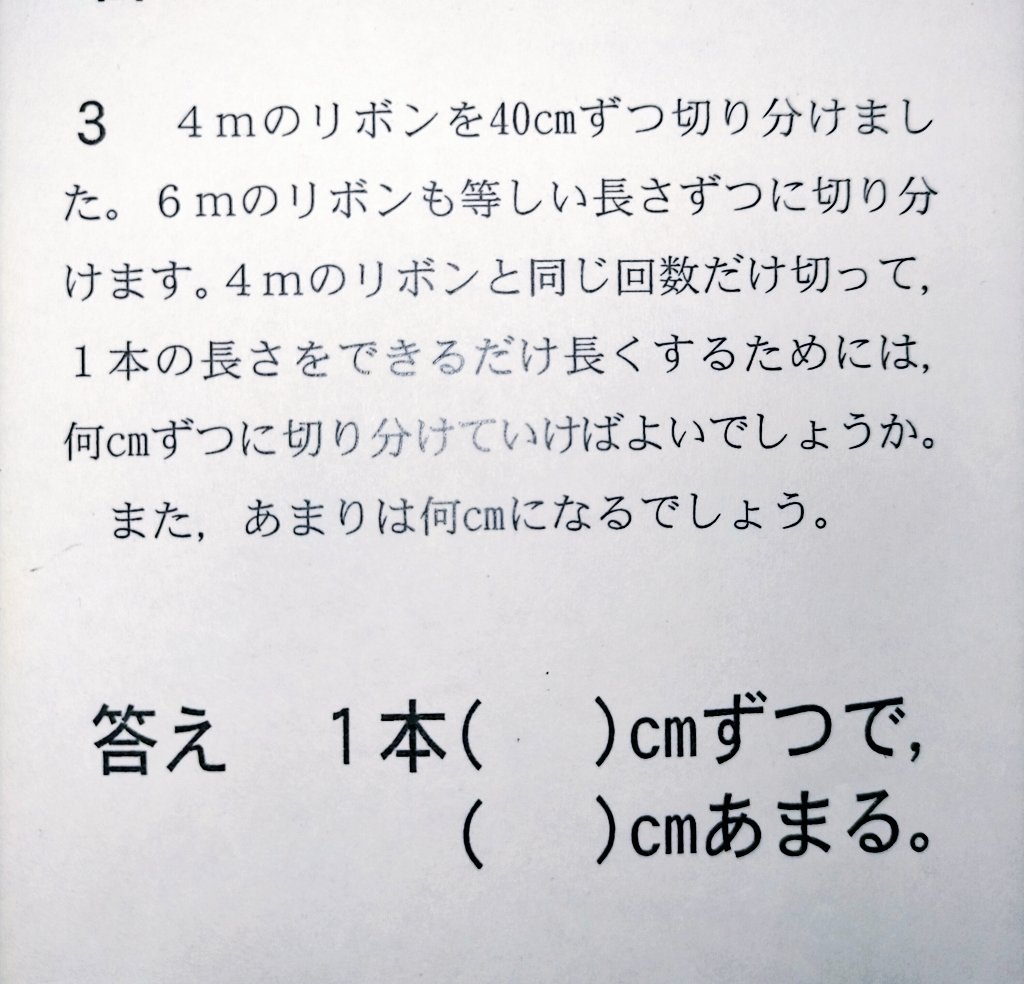 3　４ｍのリボンを40cmずつ切り分けまし
た。６ｍのリボンも等しい長さずつに切り分
けます。４ｍのリボンと同じ回数だけ切って，
１本の長さをできるだけ長くするためには，
何cmずつに切り分けていけばよいでしょうか。
また，あまりは何cmになるでしょう。
答え　１本(　　)cmずつで，
(　　)cmあまる。